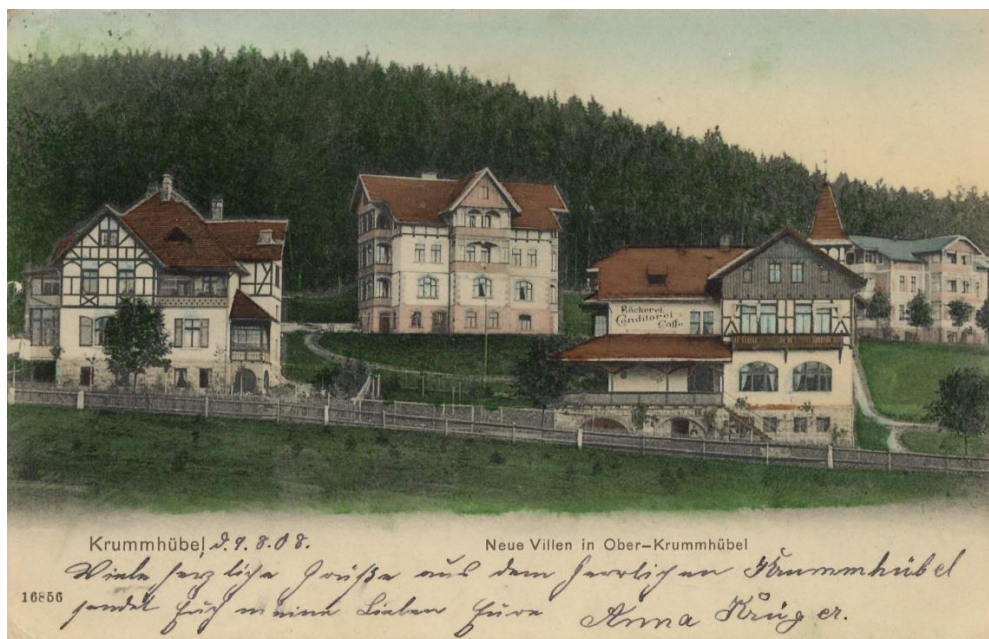 Bäckerei
Conditorei
Caffe
Krummhübel, d. 9.8.08.
Neue Villen in Ober-Krummhübel
Viele herzliche Grüße aus dem herrlichen Krummhübel
16856
sendet Euch meine Lieben Eure Anna Krüger.